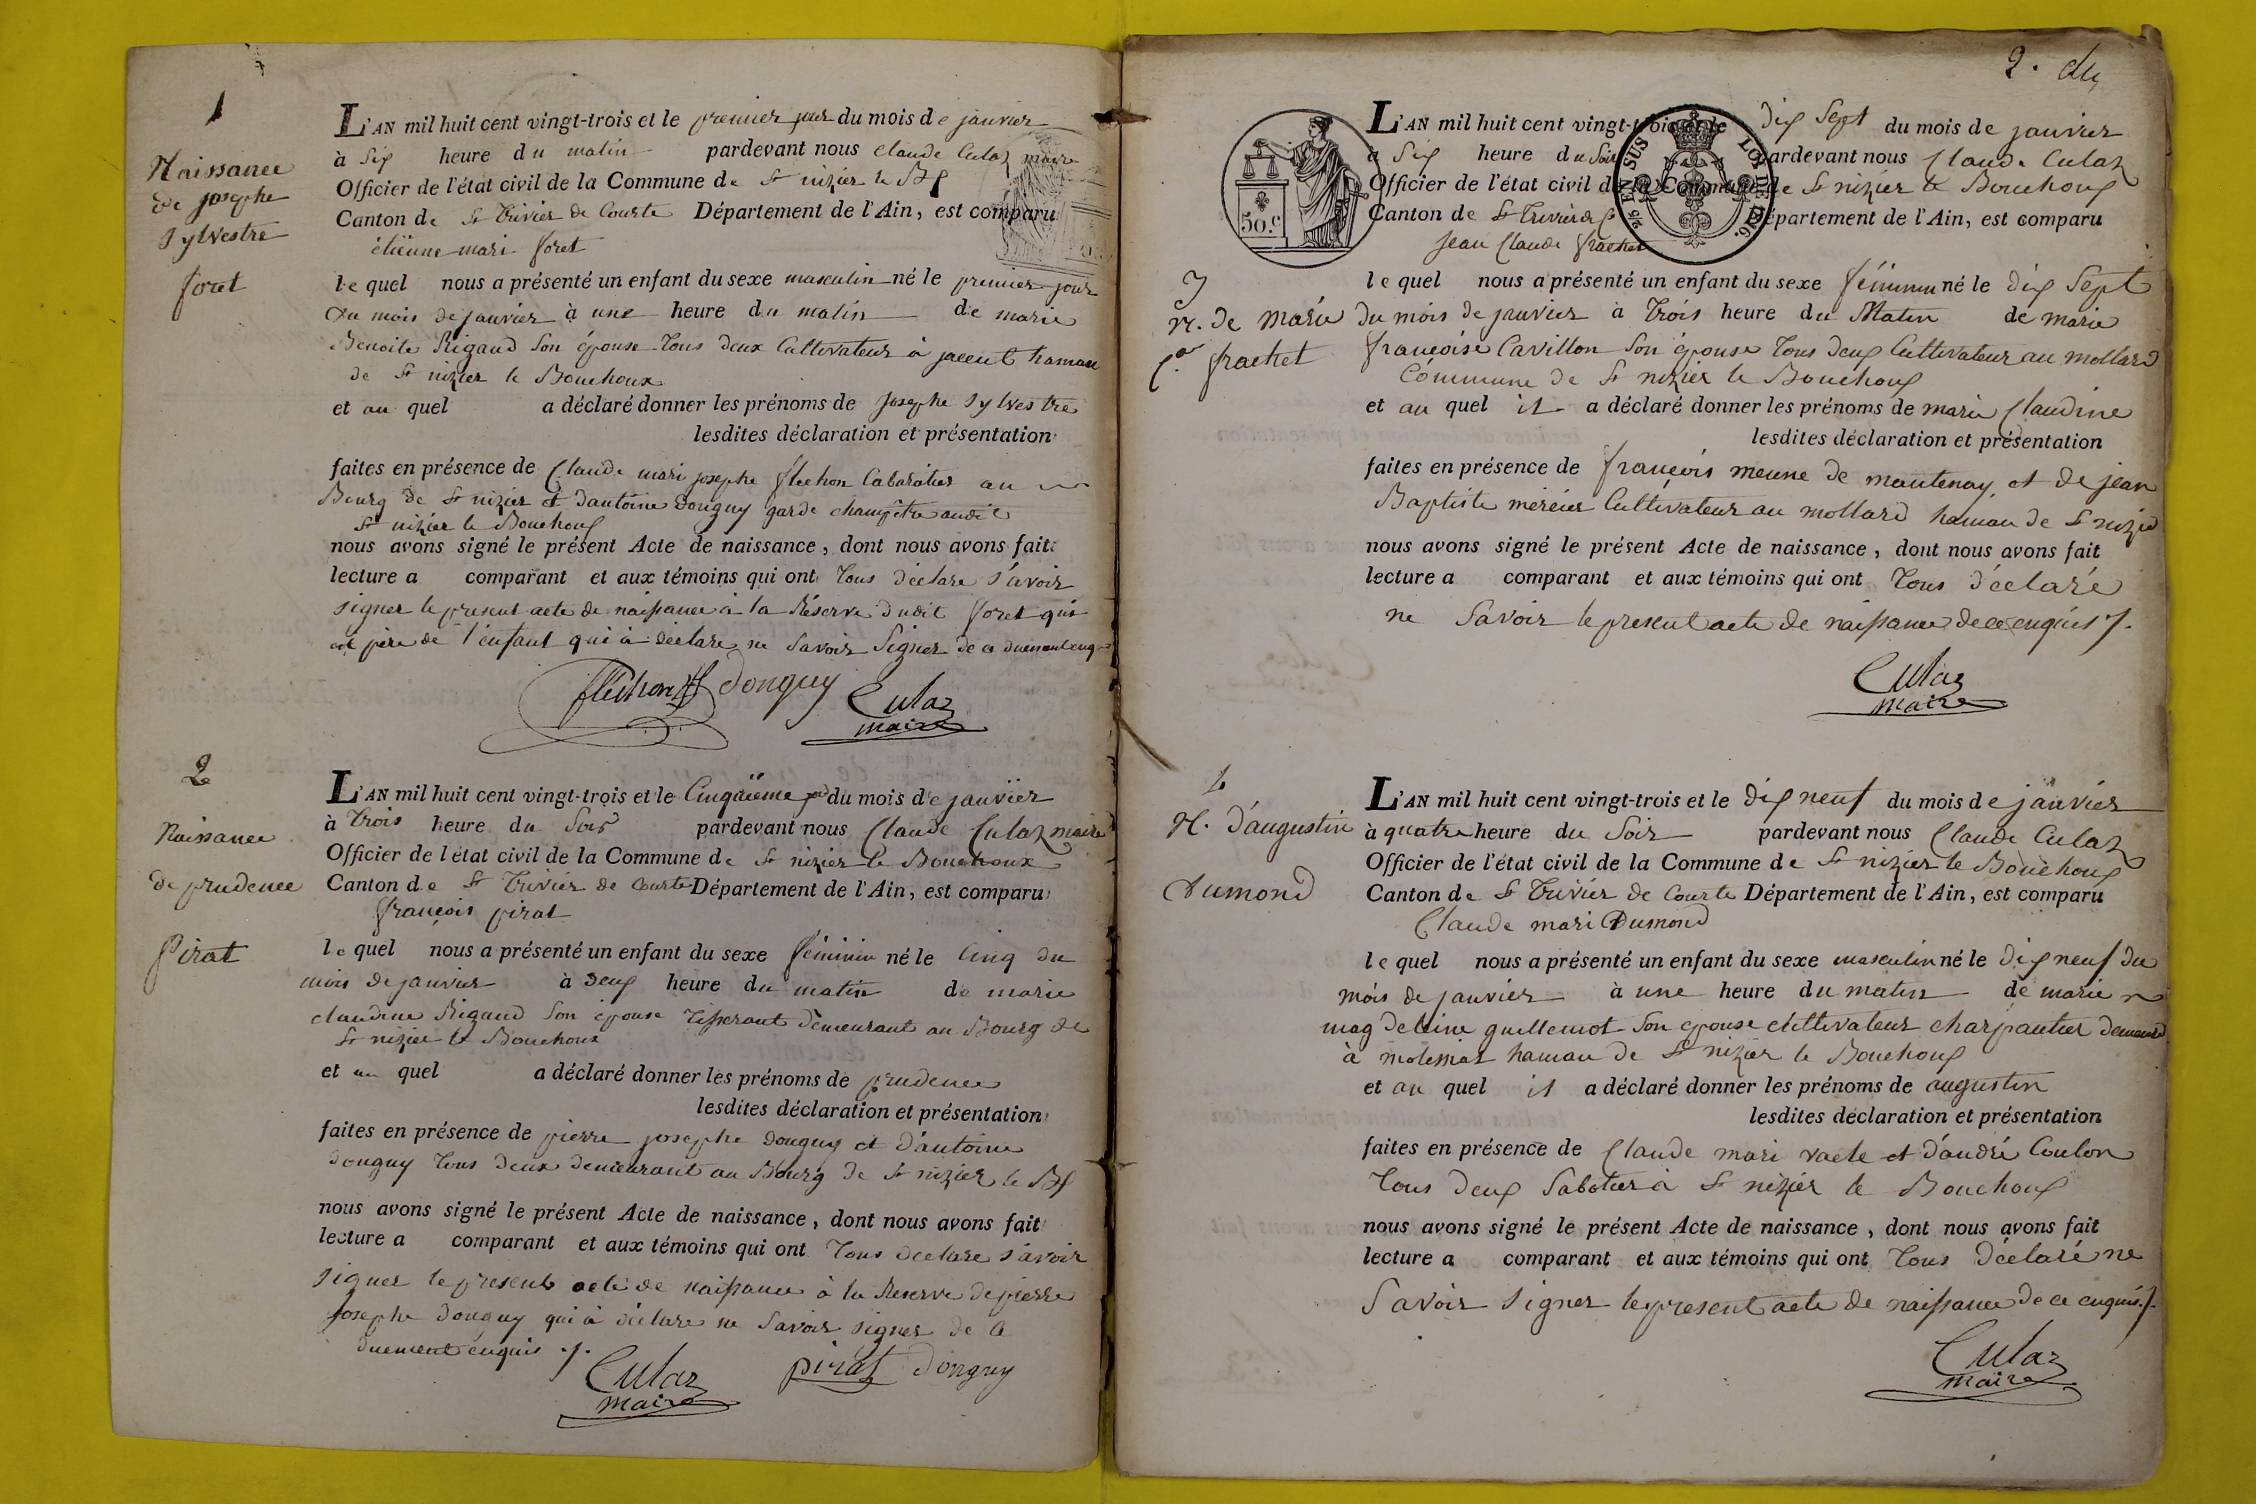 1
Naissance
de josephe
Sylvestre
foret
L'AN mil huit cent vingt-trois et le premier jour du mois de janvier
à Six heure du matin pardevant nous Claude Culaz maire
Officier de l'état civil de la Commune de St nizier le Bx
Canton de St Trivier de Courte Département de l'Ain, est comparu
étiënne mari foret
le quel nous a présenté un enfant du sexe masculin né le premier jour
du mois de janvier à une heure du matin de marie
Benoite Rigaud Son épouse Tous deux Cultivateur à jacent hamau
de St nizier le Bouchoux
et au quel a déclaré donner les prénoms de josephe Sylvestre
lesdites déclaration et présentation
faites en présence de Claude mari josephe fléchon Cabaratier au
Bourg de St nizier et d'antoine donguy garde champêtre audit
St nizier le Bouchoux
nous avons signé le présent Acte de naissance, dont nous avons fait
lecture a comparant et aux témoins qui ont Tous déclare Savoir
signer le present acte de naissance à la Réserve dudit foret qui
est père de l'enfant qui à déclare ne Savoir Signer de ce duement enq
fléchon donguy Culaz
maire
2
Naissance
de prudence
Pirat
L'AN mil huit cent vingt-trois et le Cinquieme jour du mois de janvier
à Trois heure du Soir pardevant nous Claude Culaz maire
Officier de l'état civil de la Commune de St nizier le Bouchoux
Canton de St Trivier de Courte Département de l'Ain, est comparu
françois pirat
le quel nous a présenté un enfant du sexe féminin né le Cinq du
mois de janvier à deux heure du matin de marie
claudine Rigaud Son épouse Tisserant demeurant au Bourg de
St nizier le Bouchoux
et au quel a déclaré donner les prénoms de prudence
lesdites déclaration et présentation
faites en présence de pierre josephe donguy et d'antoine
donguy Tous deux demeurant au Bourg de St nizier le Bx
nous avons signé le présent Acte de naissance, dont nous avons fait
lecture a comparant et aux témoins qui ont Tous déclare Savoir
signer le present acte de naissance à la Reserve de pierre
josephe donguy qui à déclare ne Savoir signer de ce
duement enquis ./.
Culaz pirat donguy
maire
2.
50.c
2/5 EN SUS LOI DE 1816.
3
N. de marie
C.ne frachet
L'AN mil huit cent vingt-trois et le dix Sept du mois de janvier
à Six heure du Soir pardevant nous Claude Culaz
Officier de l'état civil de la Commune de St nizier le Bouchoux
Canton de St Trivier de C Département de l'Ain, est comparu
jean Claude frachet
le quel nous a présenté un enfant du sexe féminin né le dix Sept
du mois de janvier à Trois heure du Matin de marie
françoise Cavillon Son épouse Tous deux Cultivateur au mollard
Commune de St nizier le Bouchoux
et au quel il a déclaré donner les prénoms de marie Claudine
lesdites déclaration et présentation
faites en présence de françois meune de mantenay, et de jean
Baptiste mercier Cultivateur au mollard hamau de St nizier
nous avons signé le présent Acte de naissance, dont nous avons fait
lecture a comparant et aux témoins qui ont Tous déclaré
ne Savoir le present acte de naissance de ce enquis ./.
Culaz
maire
4
N. d'augustin
dumond
L'AN mil huit cent vingt-trois et le dix neuf du mois de janvier
à quatre heure du Soir pardevant nous Claude Culaz
Officier de l'état civil de la Commune de St nizier le Bouchoux
Canton de St Trivier de Courte Département de l'Ain, est comparu
Claude mari Dumond
le quel nous a présenté un enfant du sexe masculin né le dix neuf du
mois de janvier à une heure du matin de marie
magdeleine guillemot Son epouse cultivateur charpantier demeurd
à molemat hamau de St nizier le Bouchoux
et au quel il a déclaré donner les prénoms de augustin
lesdites déclaration et présentation
faites en présence de Claude mari vacle et d'andré Coulon
Tous deux Sabotier à St nizier le Bouchoux
nous avons signé le présent Acte de naissance, dont nous avons fait
lecture a comparant et aux témoins qui ont Tous déclaré ne
Savoir Signer le present acte de naissance de ce enquis ./.
Culaz
maire